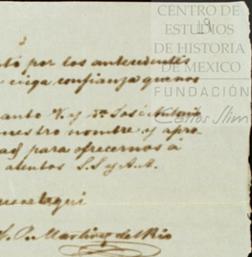 CENTRO DE
ESTUDIOS
DE HISTORIA
DE MEXICO
FUNDACIÓN
Carlos Slim
19
por los antecedentes
ciega confianza que nos
tanto V. y Dn. José Antonio
nuestro nombre y apro
para ofrecernos á
atentos S.S. y A.A.
P. Martinez del Rio